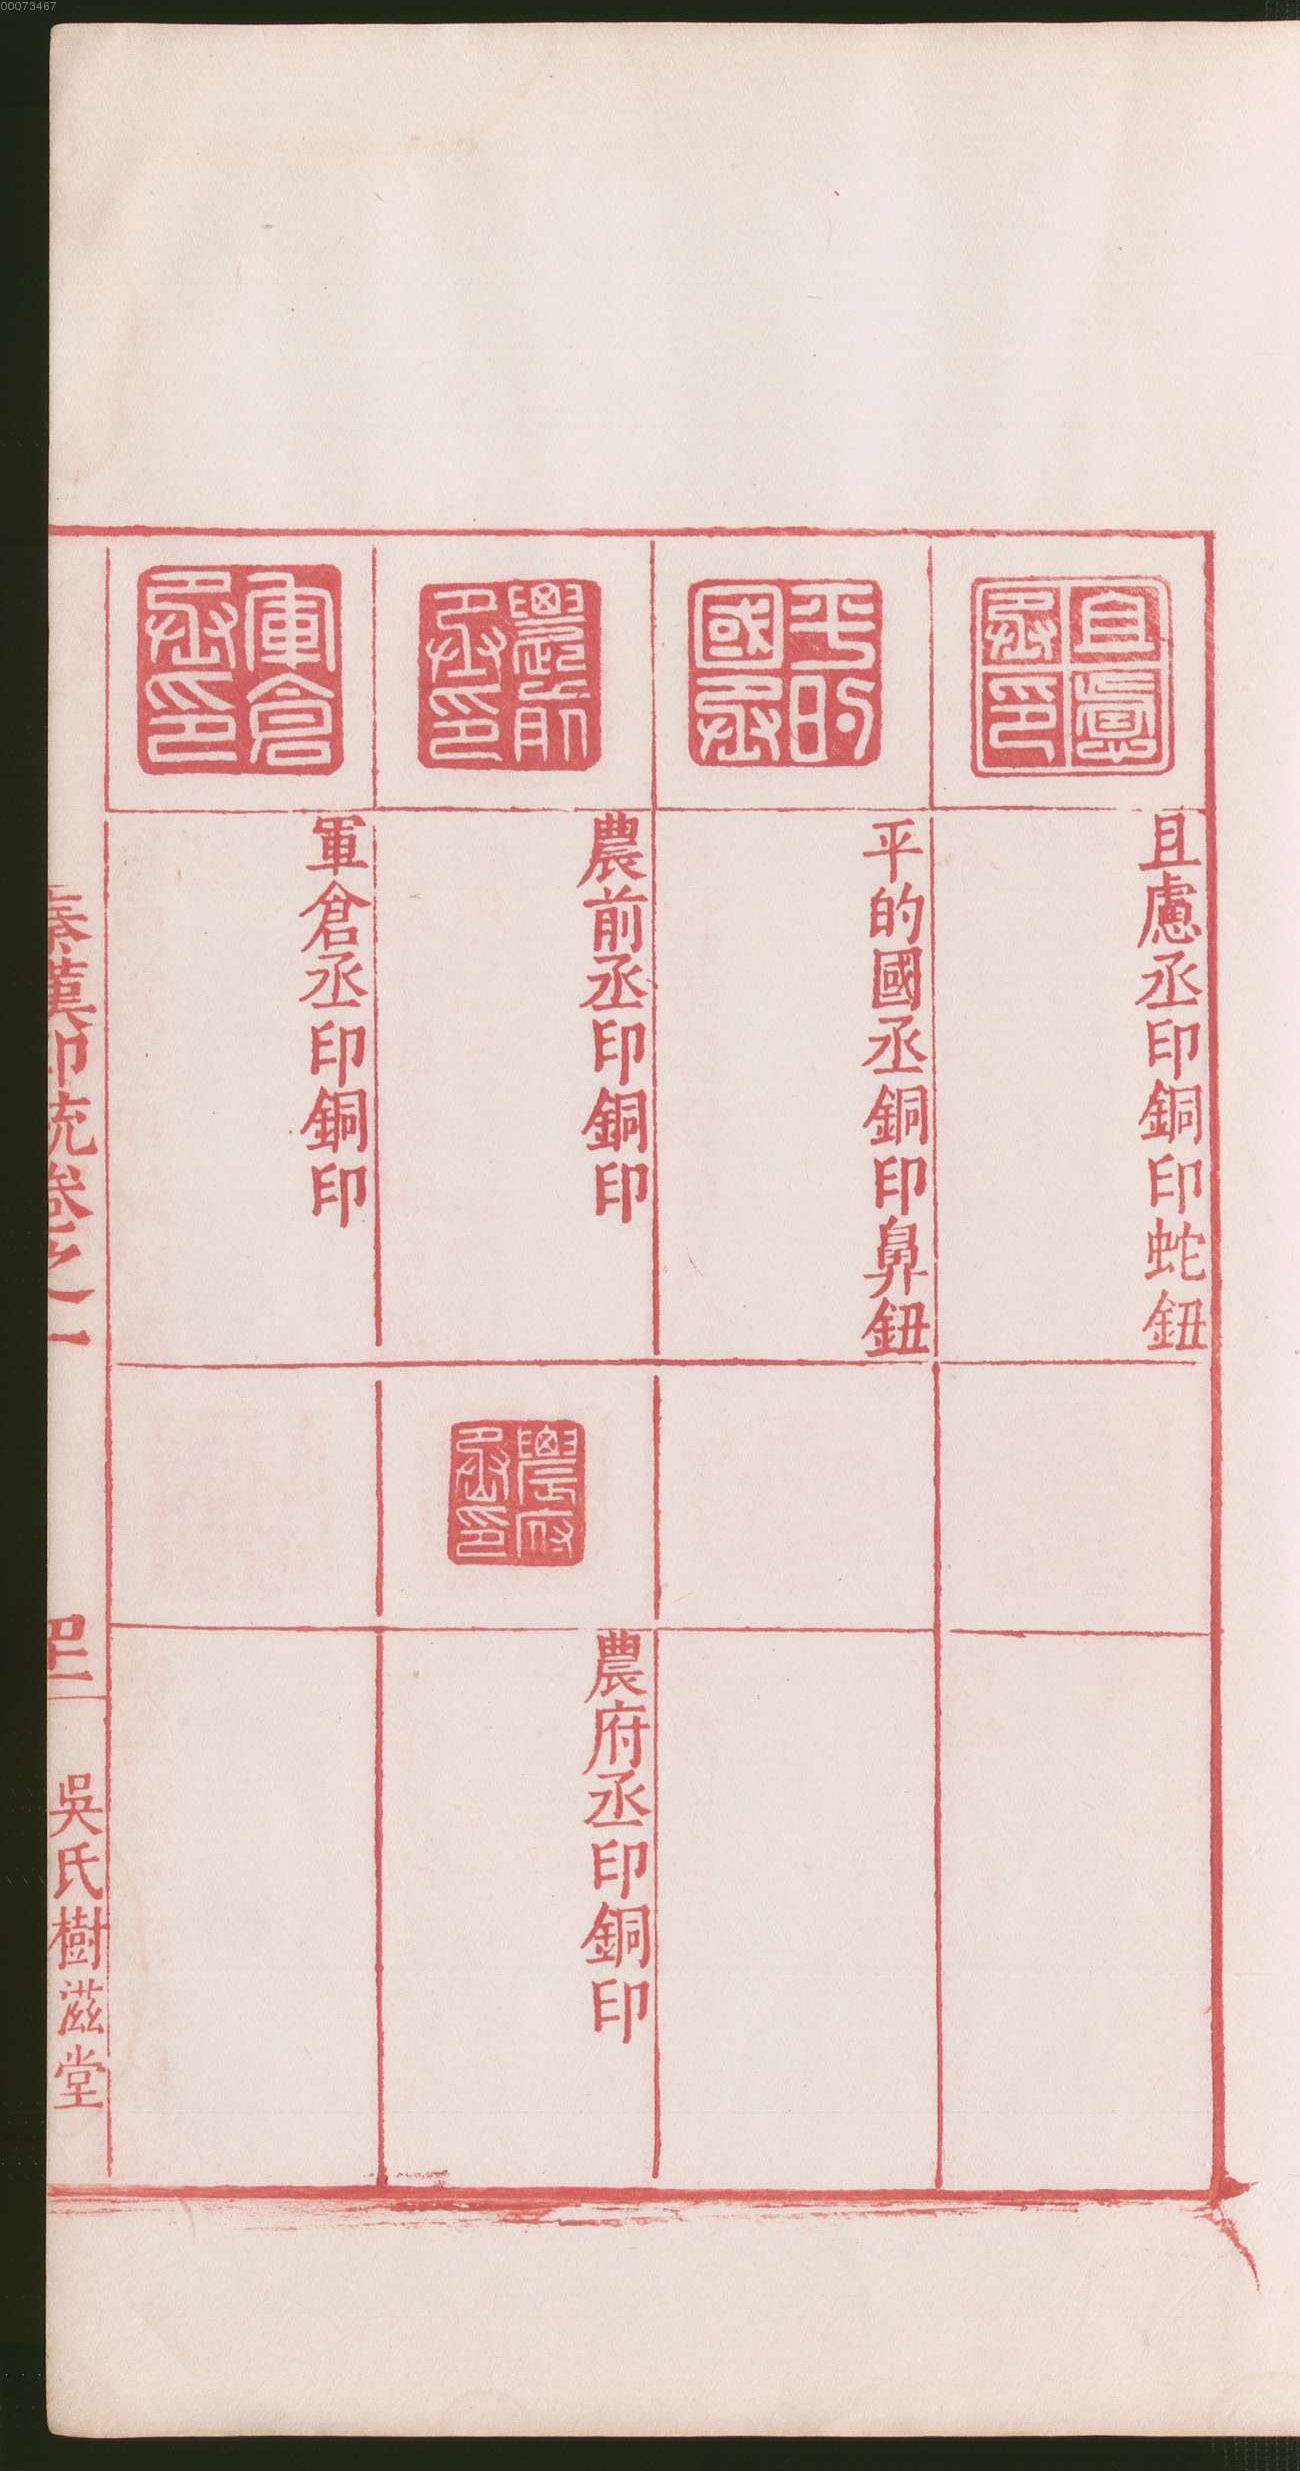 00073467
且慮丞印
且慮丞印銅印蛇鈕
平的國丞
平的國丞銅印鼻鈕
農前丞印
農前丞印銅印
農府丞印
農府丞印銅印
軍倉丞印
軍倉丞印銅印
秦漢印統卷之一
吳氏樹滋堂